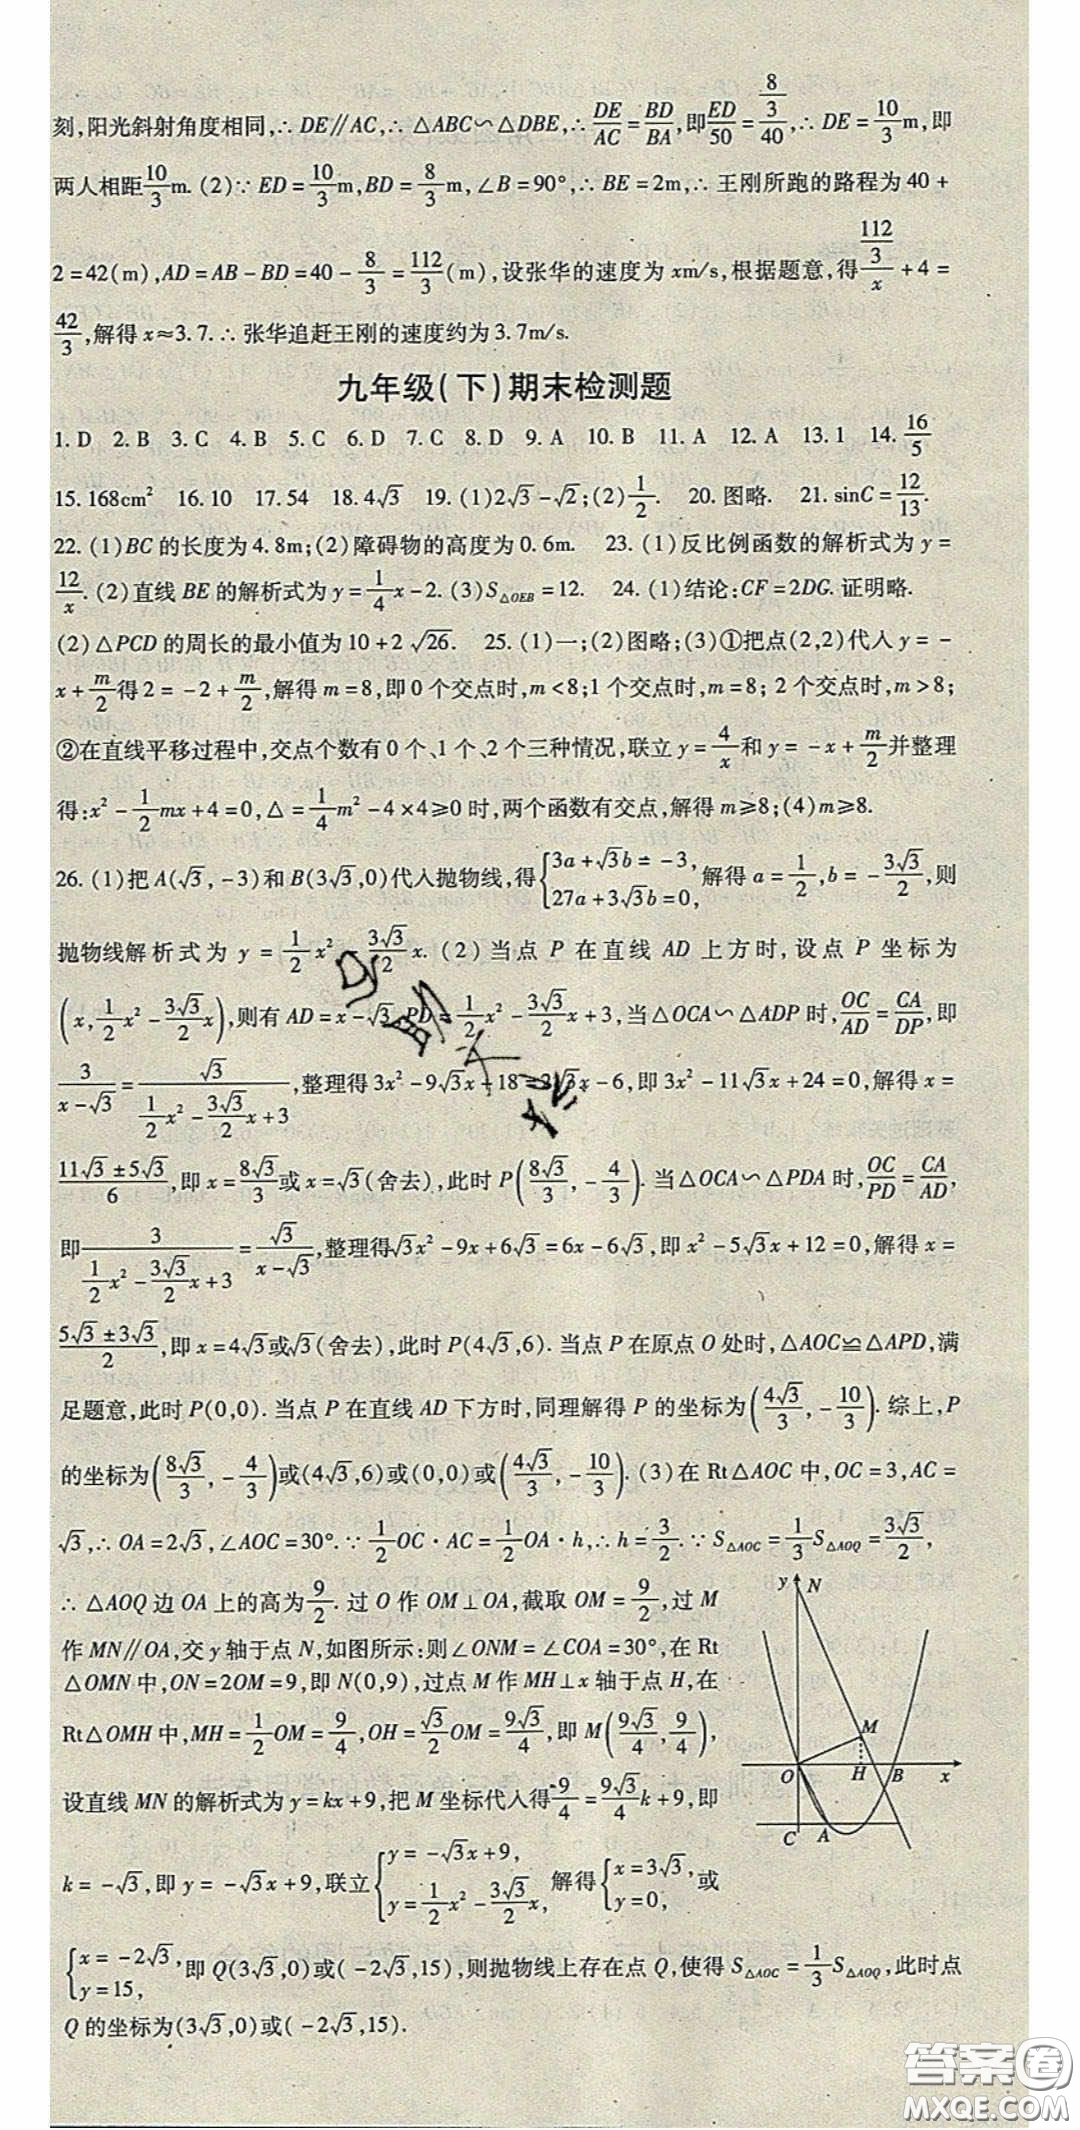 刻,阳光斜射角度相同,∴ DE∥AC,∴ △ABC∽△DBE,∴ DE/AC = BD/BA,即 ED/50 = (8/3)/40,∴ DE = 10/3 m,即
两人相距 10/3 m. (2)∵ ED = 10/3 m,BD = 8/3 m,∠B = 90°,∴ BE = 2m,∴ 王刚所跑的路程为 40 +
2 = 42(m),AD = AB - BD = 40 - 8/3 = 112/3 (m),设张华的速度为 xm/s,根据题意,得 (112/3)/x + 4 =
42/3,解得 x≈3.7.∴ 张华追赶王刚的速度约为 3.7m/s.
九年级(下)期末检测题
1. D 2. B 3. C 4. B 5. C 6. D 7. C 8. D 9. A 10. B 11. A 12. A 13. 1 14. 16/5
15. 168cm² 16. 10 17. 54 18. 4√3 19. (1)2√3 - √2;(2)1/2. 20. 图略. 21. sinC = 12/13.
22. (1)BC 的长度为 4.8m;(2)障碍物的高度为 0.6m. 23. (1)反比例函数的解析式为 y =
12/x. (2)直线 BE 的解析式为 y = 1/4 x - 2. (3)S△OEB = 12. 24. (1)结论:CF = 2DG. 证明略.
(2)△PCD 的周长的最小值为 10 + 2√26. 25. (1)一;(2)图略;(3)①把点(2,2)代入 y = -
x + m/2 得 2 = -2 + m/2,解得 m = 8,即 0 个交点时,m < 8;1 个交点时,m = 8; 2 个交点时,m > 8;
②在直线平移过程中,交点个数有 0 个、1 个、2 个三种情况,联立 y = 4/x 和 y = -x + m/2 并整理
得:x² - 1/2 mx + 4 = 0,△ = 1/4 m² - 4×4≥0 时,两个函数有交点,解得 m≥8;(4)m≥8.
26. (1)把 A(√3, -3)和 B(3√3,0)代入抛物线,得 {3a + √3b = -3, 27a + 3√3b = 0, 解得 a = 1/2,b = - 3√3/2,则
抛物线解析式为 y = 1/2 x² - 3√3/2 x. (2)当点 P 在直线 AD 上方时,设点 P 坐标为
(x, 1/2 x² - 3√3/2 x),则有 AD = x - √3, PD = 1/2 x² - 3√3/2 x + 3,当△OCA∽△ADP 时, OC/AD = CA/DP,即
3/(x - √3) = √3/(1/2 x² - 3√3/2 x + 3),整理得 3x² - 9√3x + 18 = 2√3x - 6,即 3x² - 11√3x + 24 = 0,解得 x =
(11√3 ± 5√3)/6,即 x = 8√3/3 或 x = √3(舍去),此时 P(8√3/3, - 4/3). 当△OCA∽△PDA 时, OC/PD = CA/AD,
即 3/(1/2 x² - 3√3/2 x + 3) = √3/(x - √3),整理得√3x² - 9x + 6√3 = 6x - 6√3,即 x² - 5√3x + 12 = 0,解得 x =
(5√3 ± 3√3)/2,即 x = 4√3或√3(舍去),此时 P(4√3,6). 当点 P 在原点 O 处时,△AOC≌△APD,满
足题意,此时 P(0,0). 当点 P 在直线 AD 下方时,同理解得 P 的坐标为(4√3/3, - 10/3). 综上,P
的坐标为(8√3/3, - 4/3)或(4√3,6)或(0,0)或(4√3/3, - 10/3). (3)在 Rt△AOC 中,OC = 3,AC =
√3,∴ OA = 2√3,∠AOC = 30°.∵ 1/2 OC · AC = 1/2 OA · h,∴ h = 3/2.∵ S△AOC = 1/3 S△AOQ = 3√3/2,
∴ △AOQ 边 OA 上的高为 9/2. 过 O 作 OM⊥OA,截取 OM = 9/2,过 M
作 MN∥OA,交 y 轴于点 N,如图所示:则∠ONM = ∠COA = 30°,在 Rt
△OMN 中,ON = 2OM = 9,即 N(0,9),过点 M 作 MH⊥x 轴于点 H,在
Rt△OMH 中,MH = 1/2 OM = 9/4,OH = √3/2 OM = 9√3/4,即 M(9√3/4, 9/4),
设直线 MN 的解析式为 y = kx + 9,把 M 坐标代入得 9/4 = 9√3/4 k + 9,即
k = -√3,即 y = -√3x + 9,联立 {y = -√3x + 9, y = 1/2 x² - 3√3/2 x, 解得 {x = 3√3, y = 0, 或
{x = -2√3, y = 15, 即 Q(3√3,0)或(-2√3,15),则抛物线上存在点 Q,使得 S△AOC = 1/3 S△AOQ,此时点
Q 的坐标为(3√3,0)或(-2√3,15).
y N
M
O H B x
C A
答案圈
MXQE.COM